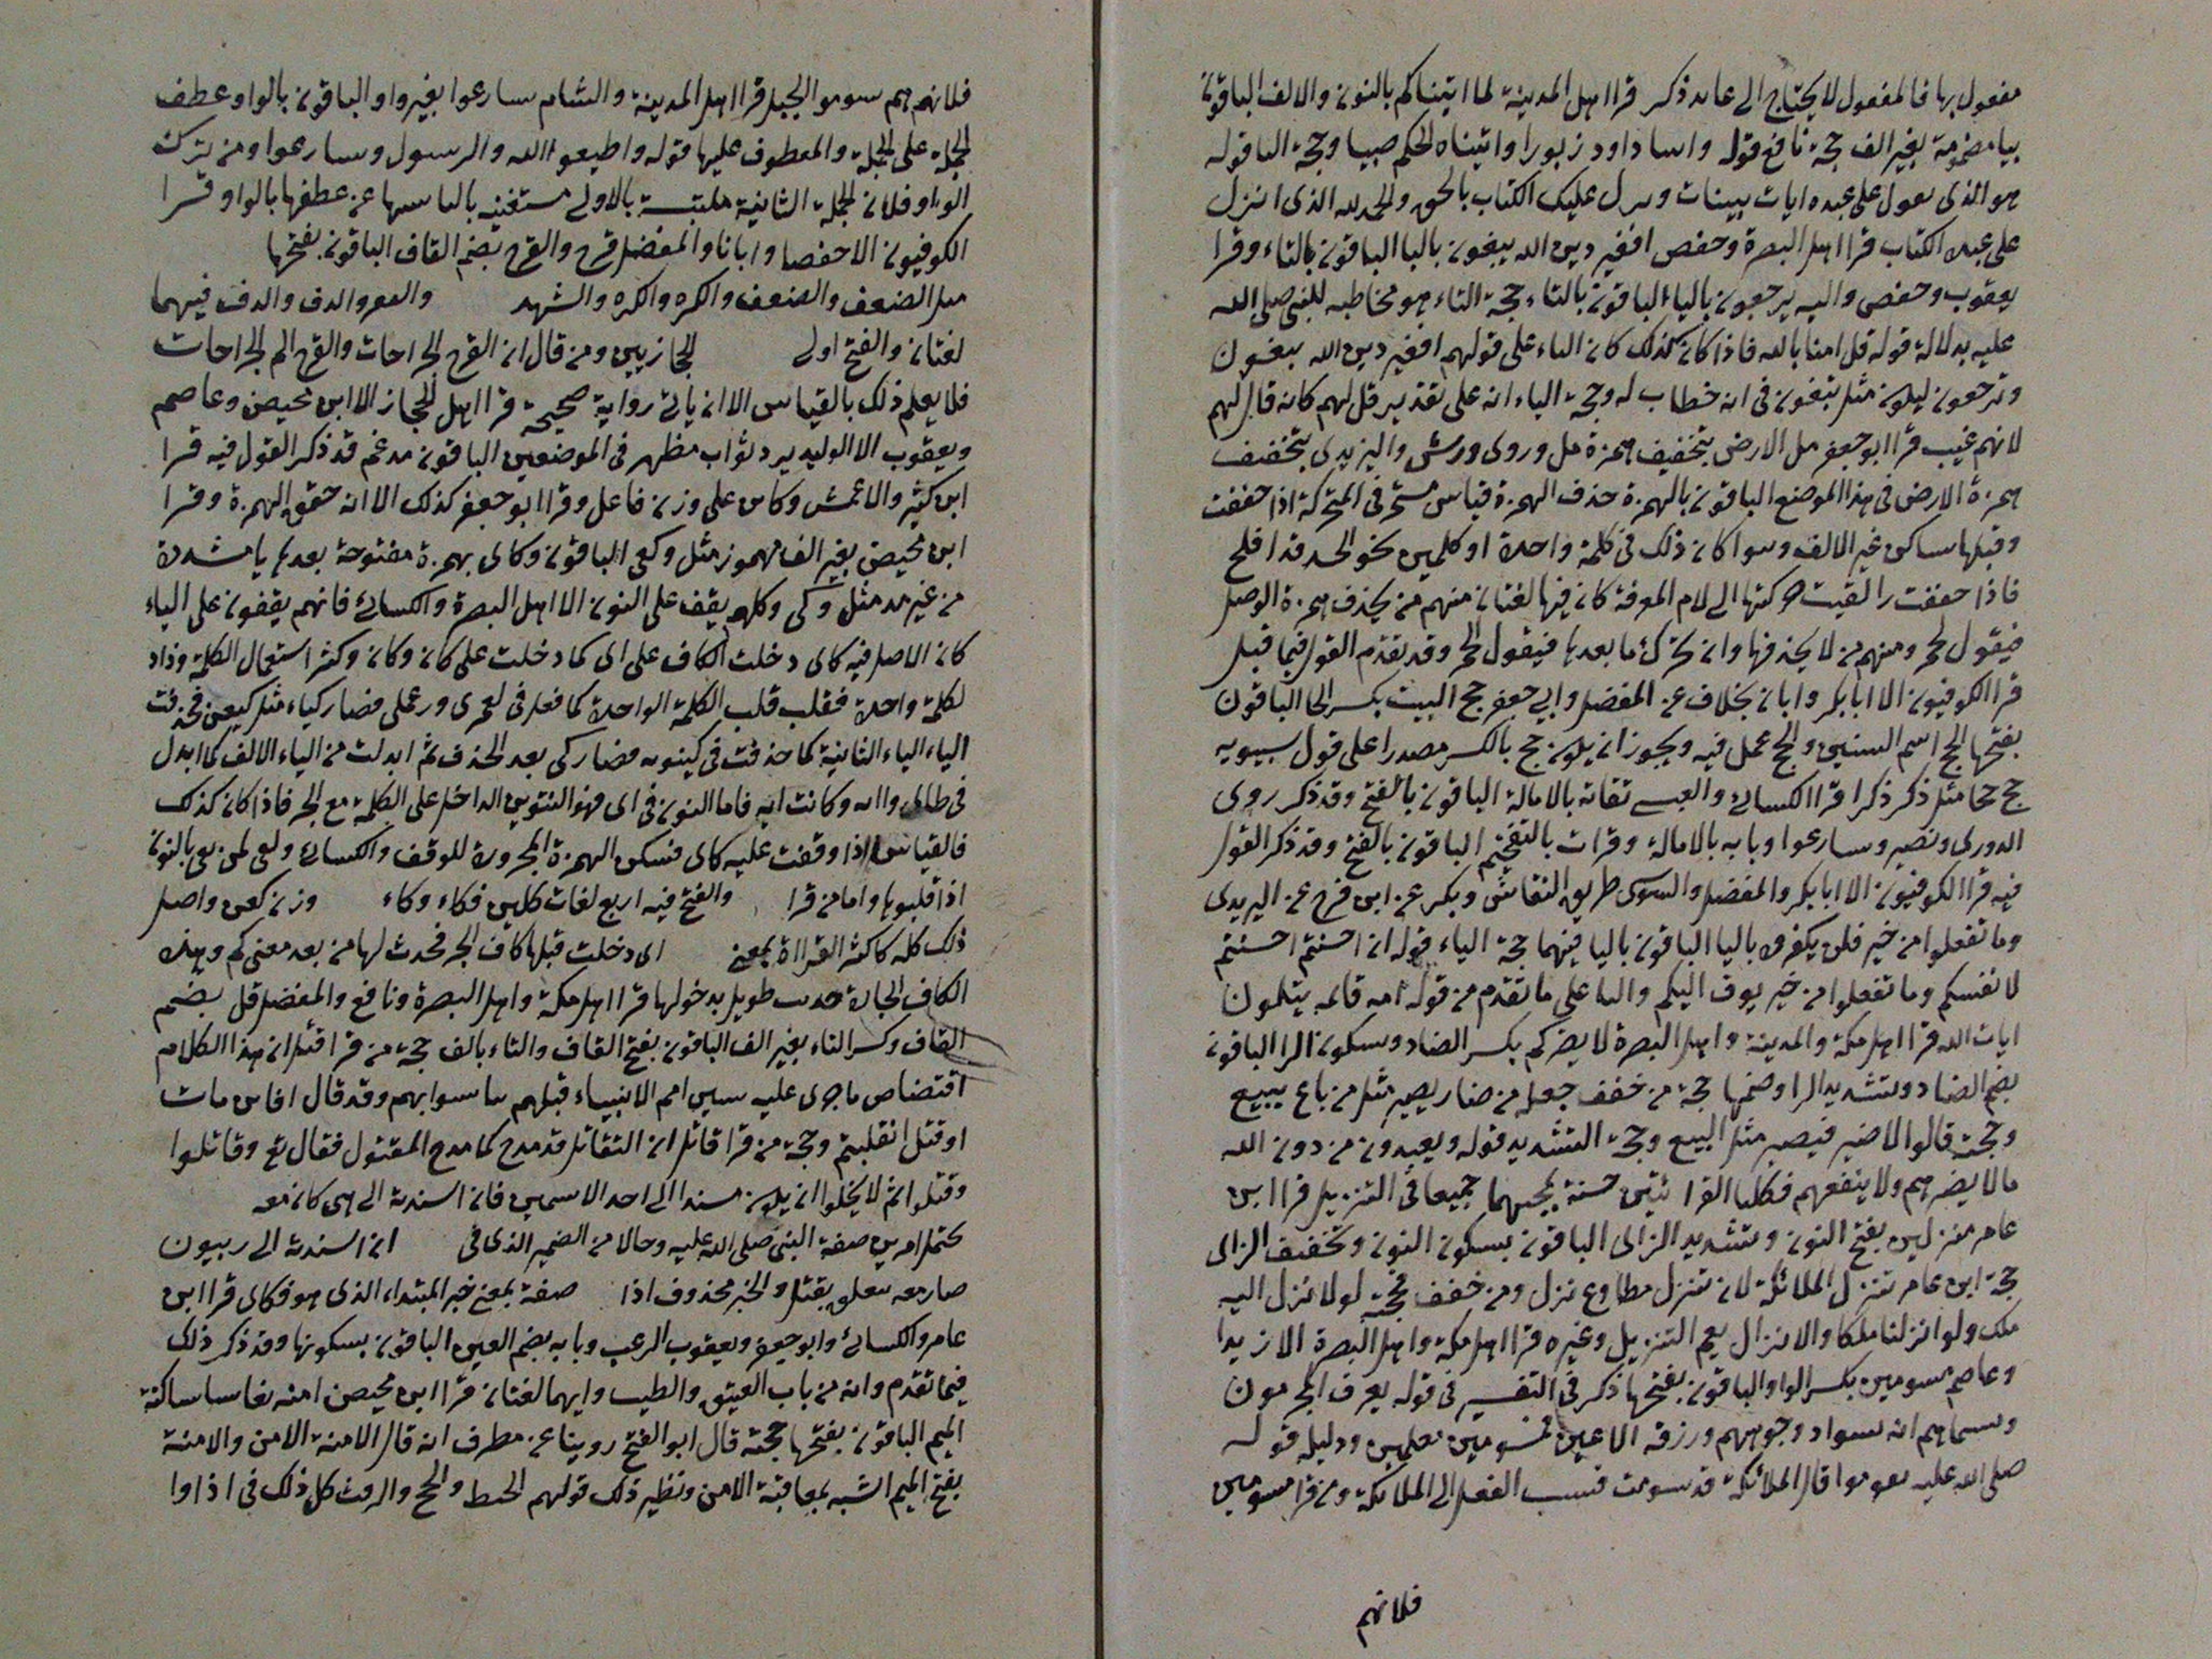 مفعول بها فالمفعول لا يحتاج الى عايد ذكر قرا اهل المدينة لما اتيناكم بالنون والالف الباقون
بيا مضمومة بغير الف حجة نافع قوله واتينا داود زبورا واتيناه الحكم صبيا وحجة الباقو له
هو الذى ىىىل على عبده ايات بينات وىىرل عليك الكتاب بالحق والحمد لله الذى انزل
على عبده الكتاب قرا اهل البصرة وحفص افغير دين الله يبغون باليا الباقون بالتاء وقرا
يعقوب وحفص واليه يرجعون بالياء الباقون بالتاء حجة التاء هو مخاطبه للنبى صلى الله
عليه بدلالة قوله قل امنا بالله فاذا كان كذلك كان التاء على قولهم افغير دين الله تبغون
وترجعون ليكون مثل تبغون فى انه خطاب له وحجة الياء انه على تقدير قل لهم كانه قال لهم
لانهم غيب قرا ابو جعفر مل الارض بتخفيف همزة مل وروى ورش واليزيدى بتخفيف
همزة الارض فى هذا الموضع الباقون بالهمزة حذف الهمزة قياس مستمر فى المتحركة اذا خففت
وقبلها ساكن غير الالف وسوا كان ذلك فى كلمة واحدة او كلمتين نحو الحمد قد افلح
فاذا خففت والقيت حركتها الى لام المعرفة كان فيها لغتان منهم من يحذف همزة الوصل
فيقول لحمر ومنهم من لا يحذفها وان تحرك ما بعدها فيقول الحمر وقد تقدم القول فيما قبل
قرا الكوفيون الا ابا بكر وابان بخلاف عنه المفضل وابى جعفر حج البيت بكسر الحا الباقون
بفتحها الحج اسم السنين والحج عمل فيه ويجوز ان يكون حج بالكسر مصدرا على قول سيبويه
حج حجا مثل ذكر ذكرا قرا الكسائى والعبسى تقاته بالامالة الباقون بالفتح وقد ذكر روى
الدورى ونصير وسارعوا وبابه بالامالة وقرات بالتفخيم الباقون بالفتح وقد ذكر القول
فيه قرا الكوفيون الا ابا بكر والمفضل والسوسى طريق النقاش وبكر عن ابن فرح عن اليزيدى
وما تفعلوا من خير فلن يكفروه باليا الباقون باليا فيهما حجة الياء قوله ان احسنتم احسنتم
لانفسكم وما تفعلوا من خير يوف اليكم واليا على ما تقدم من قوله امه قائمه يتلون
ايات الله قرا اهل مكة والمدينة واهل البصرة لا يضركم بكسر الضاد وسكون الرا الباقون
بضم الضاد وتشديد الرا وضمها حجة من خفف جعله من ضار يضير مثل من باع يبيع
وحجته قالوا لا ضير فيصير مثل البيع وحجة التشديد قوله ويعبدون من دون الله
مالا يضرهم ولا ينفعهم فكلتا القرا ئتين حسنة لمجيئهما جميعا فى التنزيل قرا ابن
عامر منزلين بفتح النون وتشديد الزاى الباقون بسكون النون وتخفيف الزاى
حجة ابن عامر تنزل الملائكة لان تنزل مطاوع نزل ومن خفف فحجته لولا نزل اليه
ملك ولو انزلنا ملكا والانزال يعم التنزيل وغيره قرا اهل مكة واهل البصرة الا زيدا
وعاصم مسومين بكسر الواو والباقون بفتحها ذكر فى التفسير فى قوله يعرف المجرمون
وسماهم انه سواد وجوههم وزرقه الاعين فمسومين معلمين ودليله قوله
صلى الله عليه سوموا قال الملائكة قد سومت فنسب الفعل الى الملائكة ومن قرا مسومين
فلانهم
فلانهم هم سوموا الخيل قرا اهل المدينة والشام سارعوا بغير واو الباقون بالواو عطف
الجملة على الجملة والمعطوف عليها قوله واطيعوا الله والرسول وسارعوا ومن ترك
الواو فلان الجملة الثانية ملتبسة بالاولى مستغنيه بالتباسها عن عطفها بالواو قرا
الكوفيون الا حفصا وابانا والمفضل قرح والقرح بضم القاف الباقون بفتحها
مثل الضعف والضعف والكره والكره والشهد والفقر والدف والدف فيهما
لغتان والفتح اولى الحجازيين ومن قال ان القرح الجراحات والقرح الم الجراحات
فلا يعلم ذلك بالقياس الا ان ياتى رواية صحيحة قرا اهل الحجاز الا ابن محيصن وعاصم
ويعقوب الا الوليد يرد ثواب مظهر فى الموضعين الباقون مدغم قد ذكر القول فيه قرا
ابن كثير والاعمش وكاين على وزن فاعل وقرا ابو جعفر كذلك الا انه خفف الهمزة وقرا
ابن محيصن بغير الف مهموز مثل وكعى الباقون وكاى بهمزة مفتوحة بعدها يا مشددة
من غير مد مثل وكى وكلهم يقف على النون الا اهل البصرة والكسائى فانهم يقفون على الياء
كان الاصل فيه كاى دخلت الكاف على اى كما دخلت على كان وكان وكثر استعمال الكلمة وذاد
لكلمة واحدة فقلب قلب الكلمة الواحدة كما فعل فى لعمرى ورعملى فصار كياء مثل كيعن فحذفت
الياء الياء الثانية كما حذفت فى كينونه فصار كى بعد الحذف ثم ابدلت من الياء الالف كما ابدل
فى طائى واىه وكانت ايه فاما النون فى اى فهو التنوين الداخل على الكلمة مع الجر فاذا كان كذلك
فالقياس اذا وقفت عليه كاى فتسكن الهمزة المجرورة للوقف والكسائى
اذا قلبوها واما من قرا والفتح فيه اربع لغات كاين فكاء وكاء وزن كعن واصل
ذلك كله كاكثر القراءة بمعنى اى دخلت قبلها كاف الجر فحدث لها من بعد معنى كم وبهذه
الكاف الجارة حديث طويل بدخولها قرا اهل مكة واهل البصرة ونافع والمفضل قتل بضم
القاف وكسر التاء بغير الف الباقون بفتح القاف والتاء بالف حجة من قرا قتل ان هذا الكلام
اقتصاص ما جرى عليه سير امم الانبياء قبلهم تاسوا بهم وقد قال افاين مات
او قتل انقلبتم وحجة من قرا قاتل ان القاتل قد مدح كما مدح المقتول فقال تع وقاتلوا
وقتلوا ثم لا يخلوا ان يكون مسندا الى احد الاسمين فان اسندته الى نبى كان معه
يحتمل امرين صفة النبى صلى الله عليه وحالا من الضمير الذى فى ان اسندته الى ربيون
صار معه متعلق بقتل والخبر محذوف اذا صفة بمعنى خبر المبتداء الذى هو فكاى قرا ابن
عامر والكسائى وابو جعفر ويعقوب الرعب وبابه بضم العين الباقون بسكونها وقد ذكر ذلك
فيما تقدم وانه من باب العتق والطيب وانهما لغتان قرا ابن محيصن امنه نعاسا ساكنة
الميم الباقون بفتحها حجته قال ابو الفتح روينا عن مطرف انه قال الامنة الامن والامنة
بفتح الميم اشبه بمعاقبة الامن ونظير ذلك قولهم الحبط والحبج والرمث كل ذلك فى اذ اوا